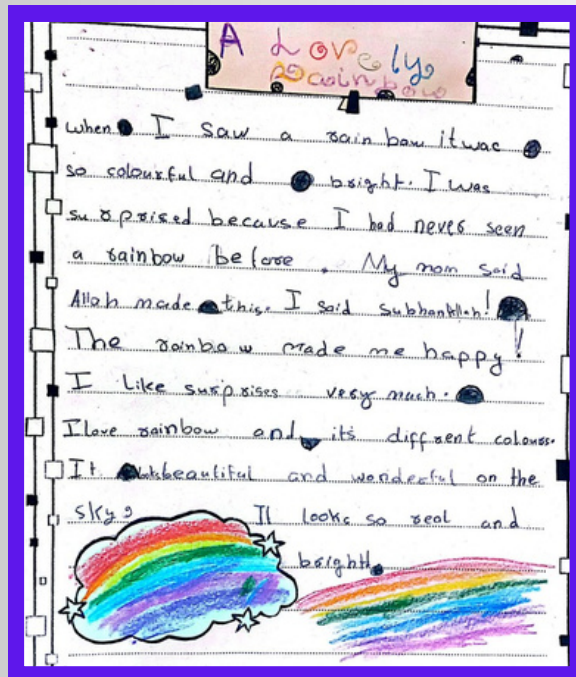 A Lovely
Rainbow
when I saw a rainbow it was
so colourful and bright. I was
surprised because I had never seen
a rainbow before. My mom said
Allah made this. I said subhanAllah!
The rainbow made me happy!
I Like surprises very much.
I love rainbow and its diffrent colours.
It beautiful and wonderful on the
sky
It looks so real and
bright.